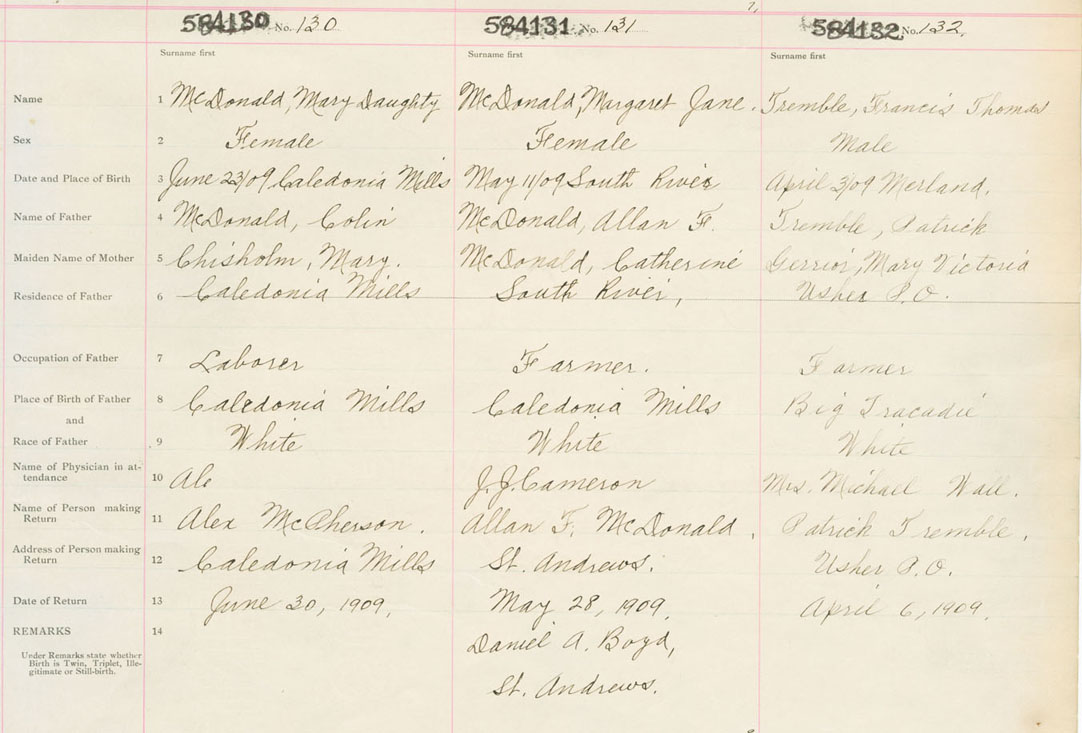 584130 No. 130 584131 No. 131 584132 No. 132.
Surname first Surname first Surname first
Name 1 McDonald, Mary Daughty McDonald, Margaret Jane. Tremble, Francis Thomas
Sex 2 Female Female Male
Date and Place of Birth 3 June 23/09 Caledonia Mills May 11/09 South River April 3/09 Merland.
Name of Father 4 McDonald, Colin McDonald, Allan F. Tremble, Patrick
Maiden Name of Mother 5 Chisholm, Mary. McDonald, Catherine Gerrior, Mary Victoria
Residence of Father 6 Caledonia Mills South River, Usher P.O.
Occupation of Father 7 Laborer Farmer. Farmer
Place of Birth of Father 8 Caledonia Mills Caledonia Mills Big Tracadie
and
Race of Father 9 White White White
Name of Physician in at-
tendance 10 Ale J.J. Cameron Mrs. Michael Wall.
Name of Person making
Return 11 Alex McPherson. Allan F. McDonald. Patrick Tremble.
Address of Person making
Return 12 Caledonia Mills St. Andrews. Usher P.O.
Date of Return 13 June 30, 1909, May 28, 1909, April 6, 1909.
REMARKS 14 Daniel A. Boyd,
Under Remarks state whether
Birth is Twin, Triplet, Ille-
gitimate or Still-birth.
St. Andrews.